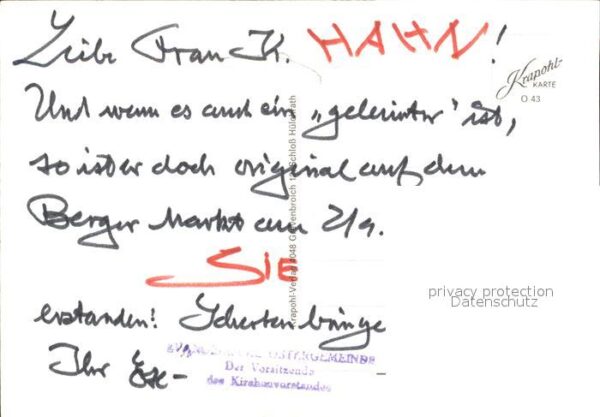 Liebe Frau K. HAHN!
Krapohl-
KARTE
O 43
Und wenn es auch ein „geleimter" ist,
so ist er doch original auf dem
Berger Markt am 2/9.
SIE
erstanden!
Ihr
Krapohl-Verlag 4048 Grevenbroich 12 Schloß Hülchrath
privacy protection
Datenschutz
OSTERGEMEINDE
Der Vorsitzende
des Kirchenvorstandes